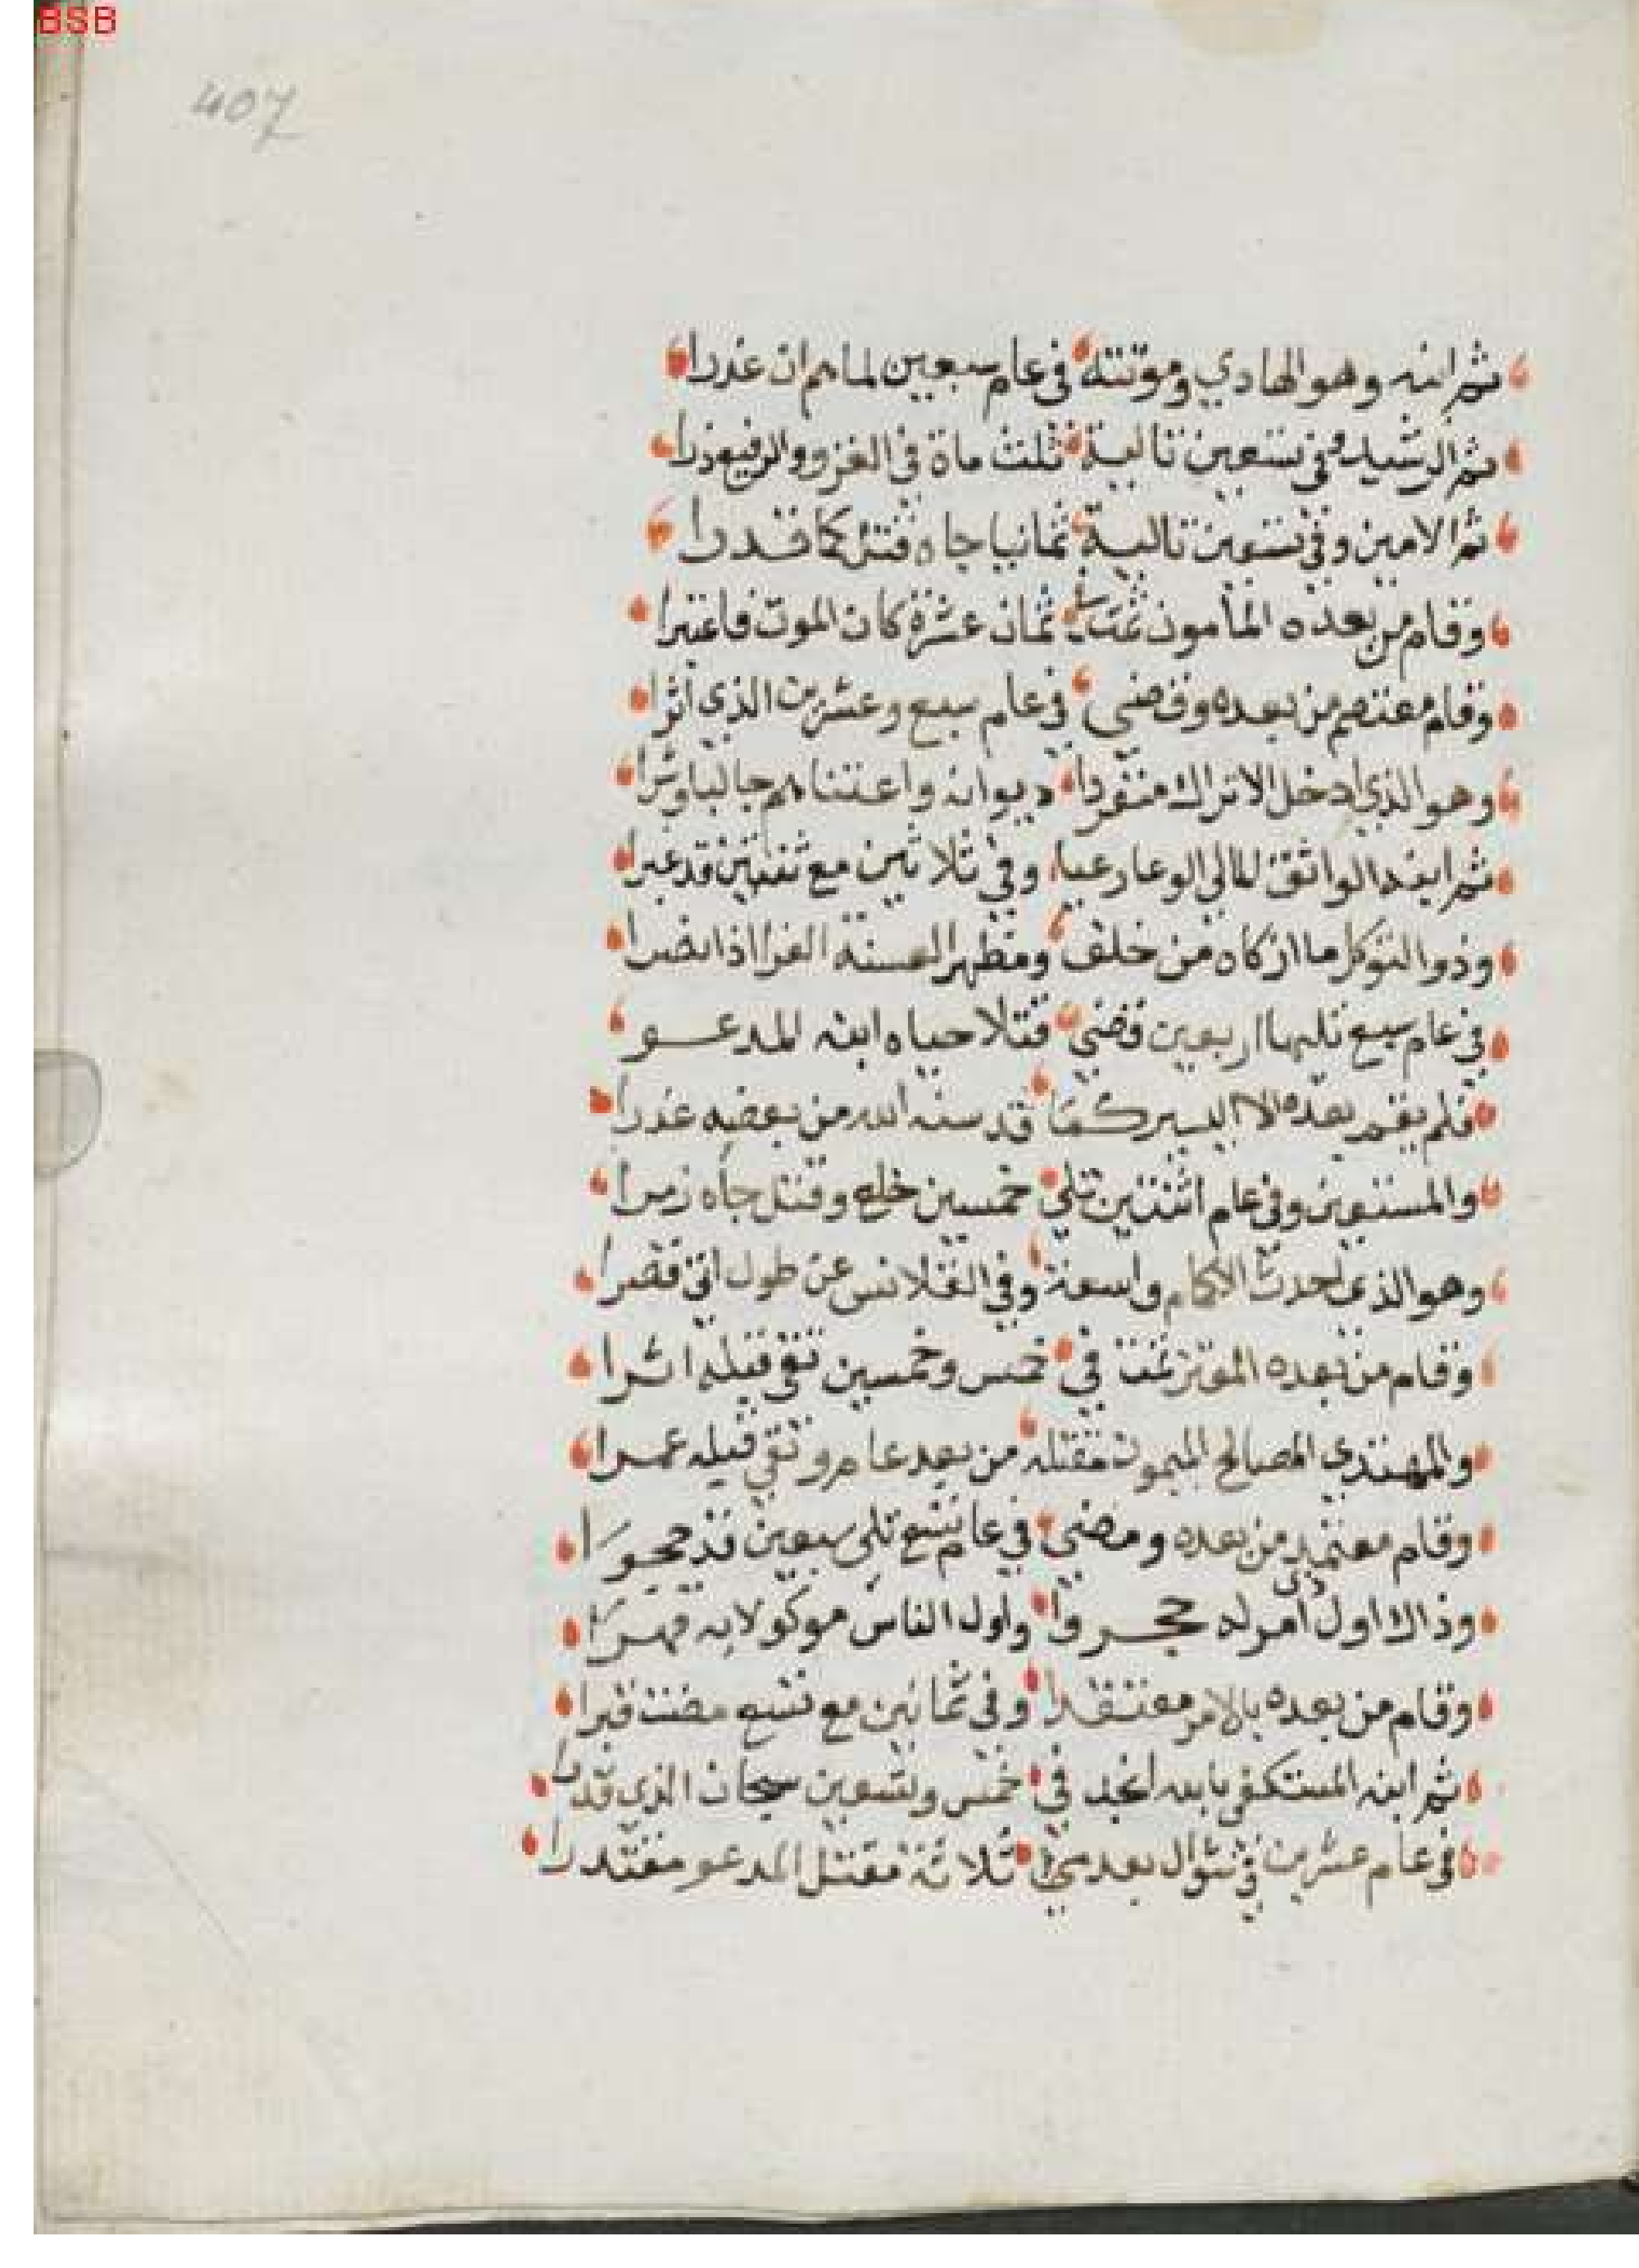 BSB
407
ثم ابنه وهو الهادي وموتته في عام سبعين لما هم ان غدرا
ثم الرشيد وفي تسعين تالية ثلث ماة في الغزو والرفيع ذرا
ثم الامين وفي تسعين تالية ثمانيا جاه قتل كما قدرا
وقام من بعده المأمون ثمت ثمان عشرة كان الموت فاعتبرا
وقام معتصم من بعده وقضى في عام سبع وعشرين الذي اثرا
وهو الذي ادخل الاتراك منفردا ديوانه واعتناهم جالبا وشرا
ثم ابنه الواثق المالي الوعا رعبا وفي ثلاثين مع ثنتين قد غبرا
وذو التوكل ما ازكاه من خلف ومظهر السنة الغرا اذا نصرا
في عام سبع تليها اربعين قضى قتلا حباه ابنه المدعو
فلم يقم بعده الا اليسير كما قد سنه الله من بعضه غدرا
والمستعين وفي عام اثنتين تلي خمسين خلع وقتل جاه زمرا
وهو الذي احدث الاكام واسعة وفي القلانس عن طول اتى قصرا
وقام من بعده المعتز ثمت في خمس وخمسين تقي قبله اثرا
والمهتدي الصالح الميموت مقتله من بعد عام وتقي قبله عمرا
وقام معتمد من بعده ومضى في عام تسع تلي سبعين قد حجرا
وذاك اول امر له حجروا واول الناس موكولا به قهرا
وقام من بعده بالامر معتقدا وفي ثمانين مع تسع مضت قبرا
ثم ابنه المستكفي بالله انجد في خمس وتسعين سبحان الذي قدرا
في عام عشرين في شوال بعد مضي ثلاثة مقتل المدعو مقتدرا